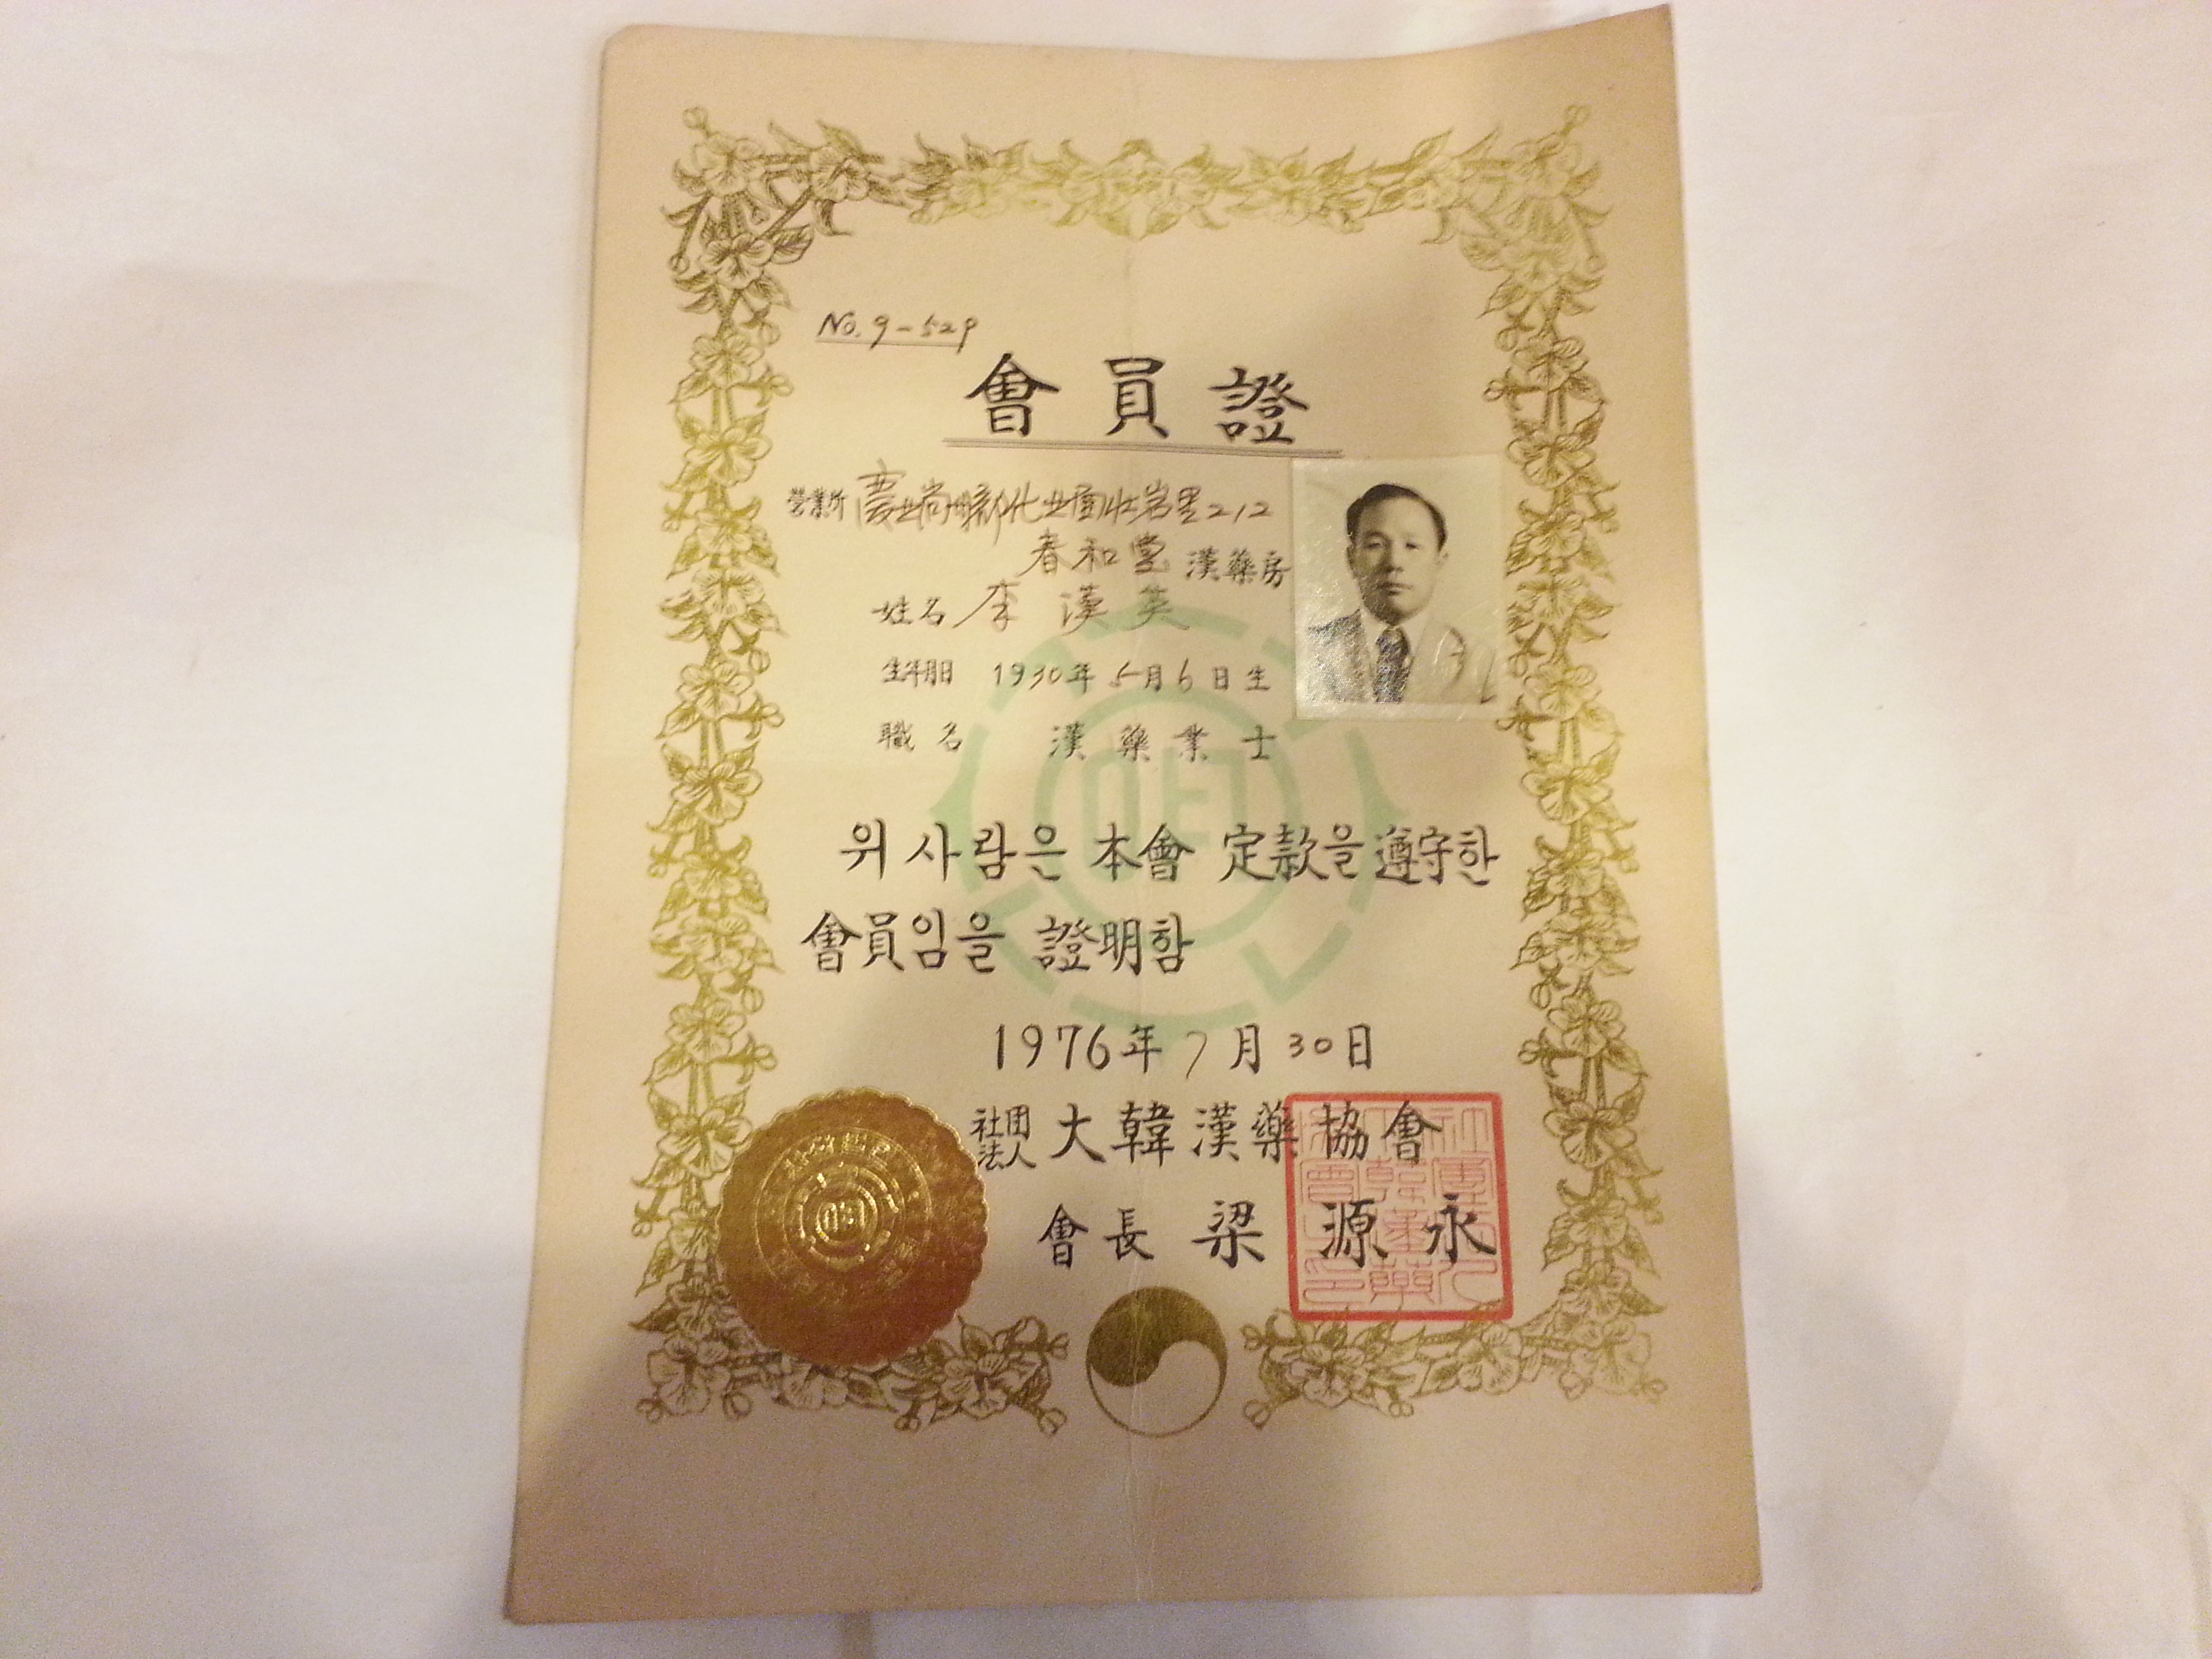 No. 9-529
會員證
營業所 慶北尙州郡化北面壯岩里212
春和堂 漢藥房
姓名 李漢英
生年月日 1930年 5月 6日生
職名 漢藥業士
위 사람은 本會 定款을 遵守한
會員임을 證明함
1976年 7月 30日
社団法人 大韓漢藥協會
會長 梁源永